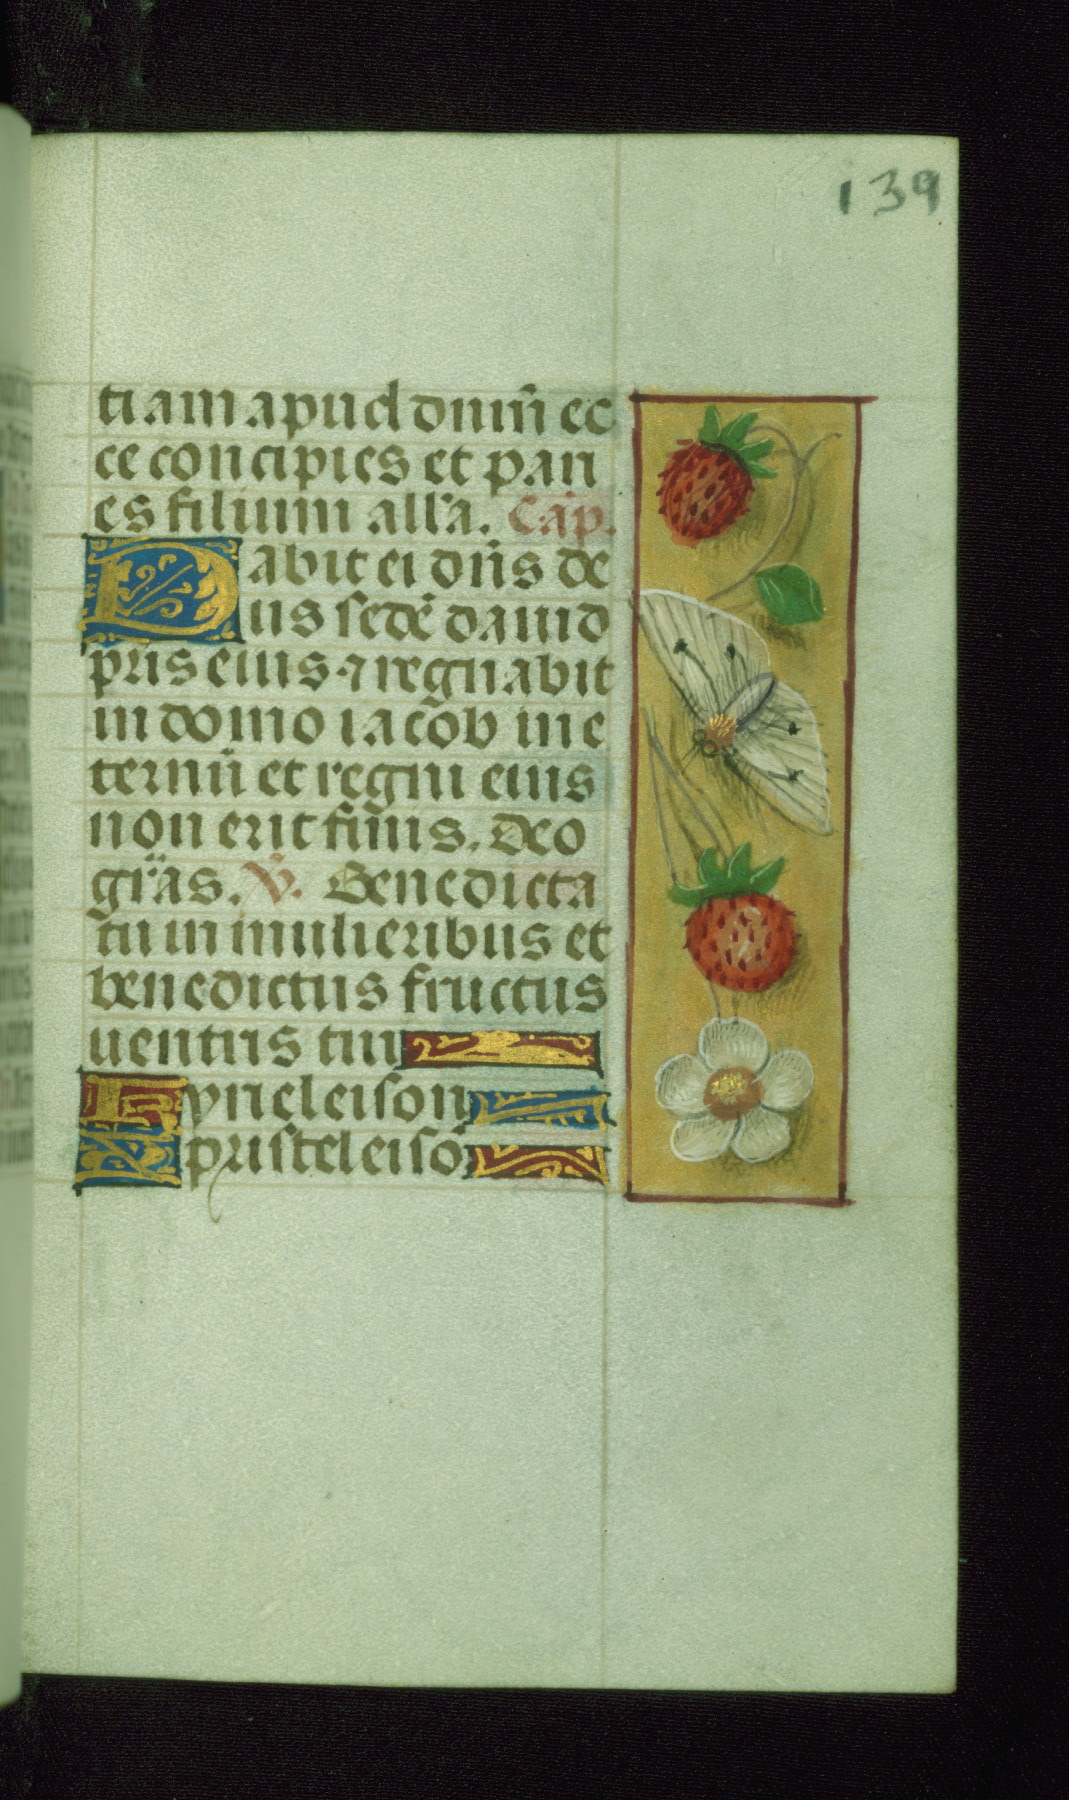 139
tiam apud dnm̄ ec
ce concipies et pari
es filium all'a. Cap.
Dabit ei dn̄s de
us sedē dauid
pr̄is eius ⁊ regnabit
in domo iacob in e
ternū et regni eius
non erit finis. Deo
gr̄as. V̄. Benedicta
tu in mulieribus et
benedictus fructus
uentris tui
Kyrieleison
Xpristeleisō